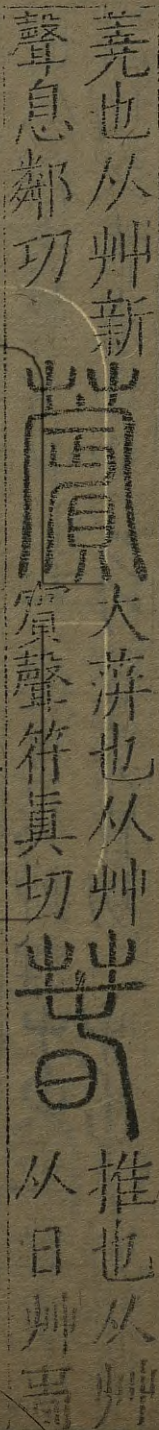 蕘也从艸新
聲息鄰切
薲
大蓱也从艸
賔聲符眞切
萅
推也从艸
从日艸春